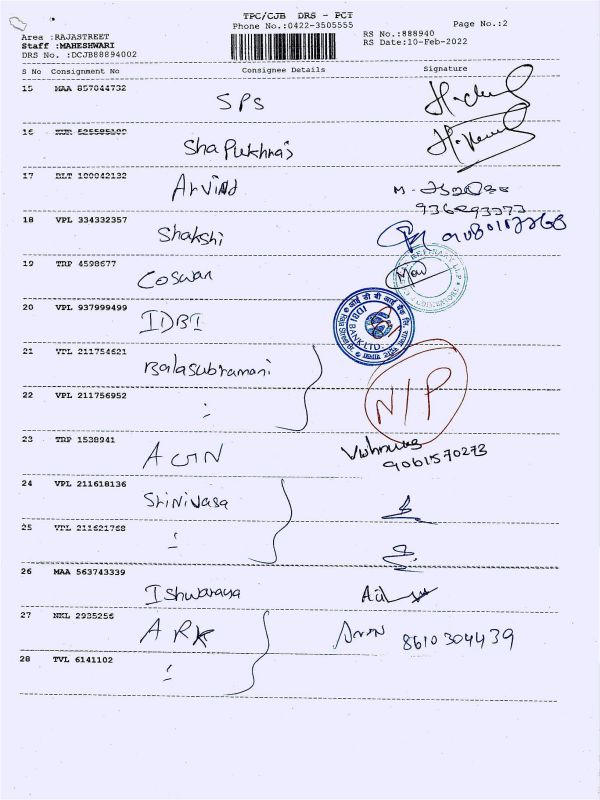 TPC/CJB DRS - PCT
Phone No.:0422-3505555
Page No.:2
Area :RAJASTREET
RS No.:888940
Staff :MAHESHWARI
RS Date:10-Feb-2022
DRS No. :DCJB88894002
S No Consignment No Consignee Details Signature
15 MAA 857044732
SPS
16
17 DLT 100042132
Arvind
18 VPL 334332357
Shakshi
19 TRP 4598677
Coswan
20 VPL 937999499
IDBI
IDBI BANK LTD.
21 VPL 211754621
Balasubramani
N/P
22 VPL 211756952
:
23 TRP 1538941
AGN
9061570273
24 VPL 211618136
Srinivasa
25 VPL 211621768
:
26 MAA 563743339
Ishwaraya
27 NKL 2935256
ARK
Arun 8610304439
28 TVL 6141102
: